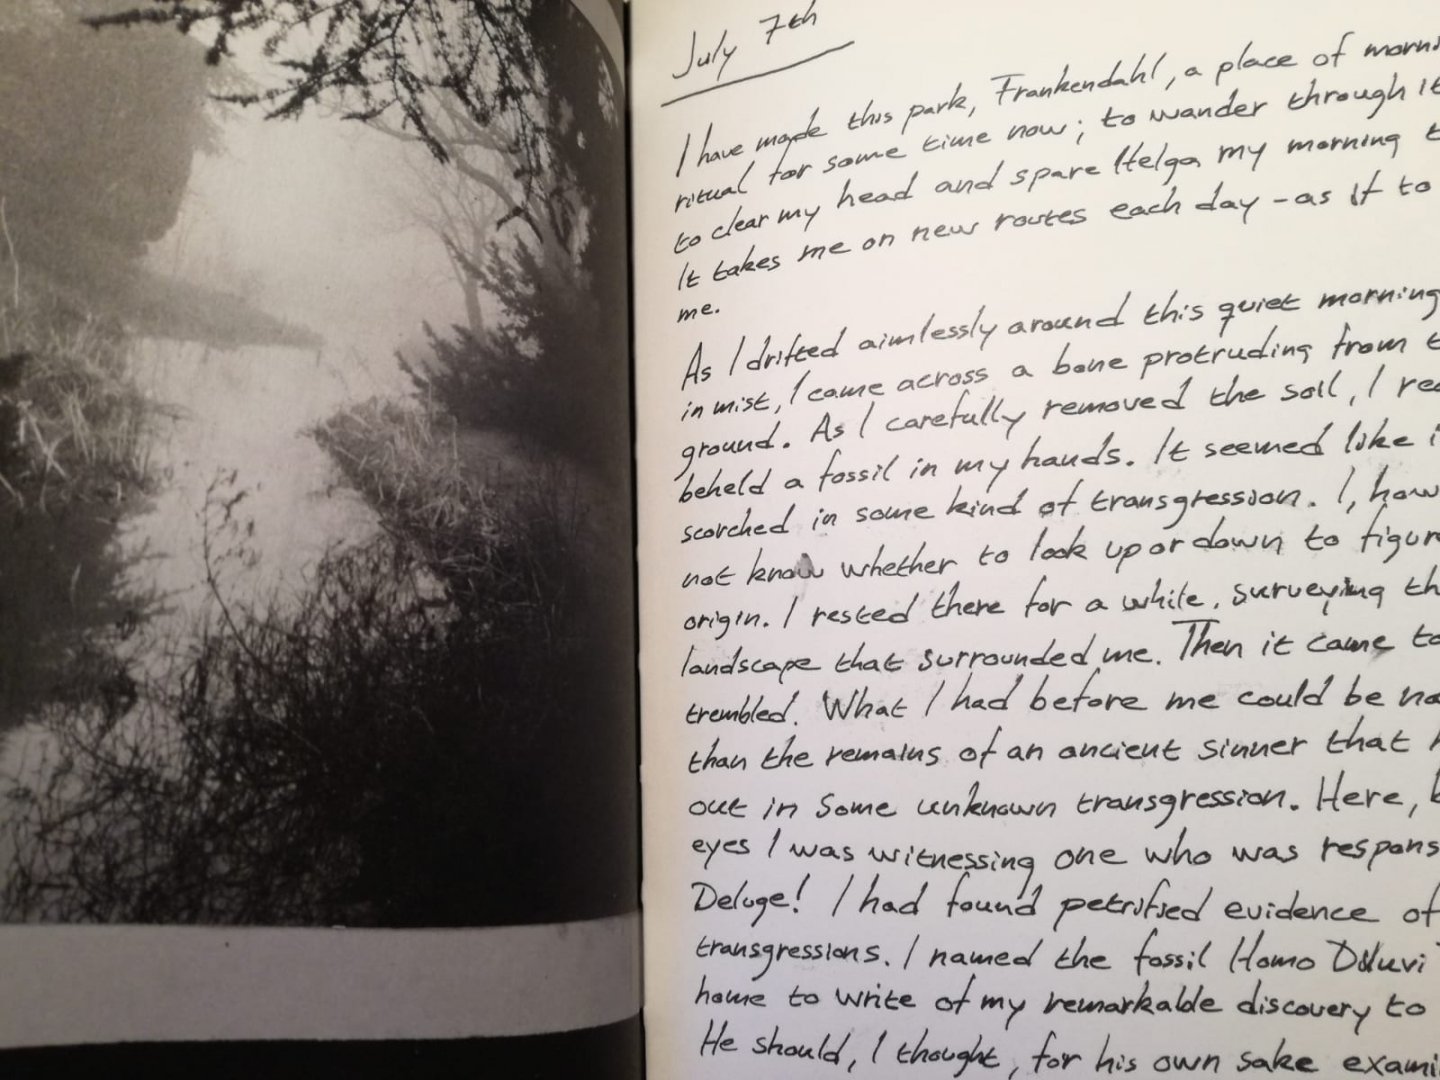 July 7th
I have made this park, Frankendahl, a place of morni
ritual for some time now; to wander through it
to clear my head and spare Helga my morning t
It takes me on new routes each day - as if to
me.
As I drifted aimlessly around this quiet morning
in mist, I came across a bone protruding from t
ground. As I carefully removed the soil, I rea
beheld a fossil in my hands. It seemed like i
scorched in some kind of transgression. I, how
not know whether to look up or down to figur
origin. I rested there for a while, surveying th
landscape that surrounded me. Then it came to
trembled. What I had before me could be no
than the remains of an ancient sinner that h
out in some unknown transgression. Here, b
eyes I was witnessing one who was respons
Deluge! I had found petrified evidence of
transgressions. I named the fossil Homo Diluvi
home to write of my remarkable discovery to
He should, I thought, for his own sake exami